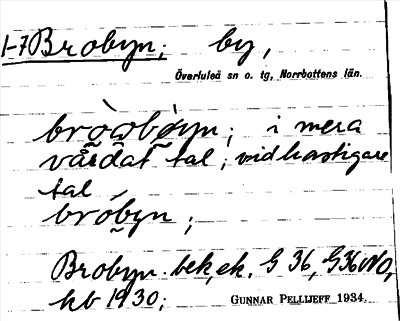 1-7 Brobyn; by,
Överluleå sn o. tg, Norrbottens län.
bròwbøyn; i mera
vårdat tal; vid hastigare
tal
bróbyn;
Brobyn. bek, ek. G 36, G36NO,
kb 1930;
GUNNAR PELLIJEFF 1934.